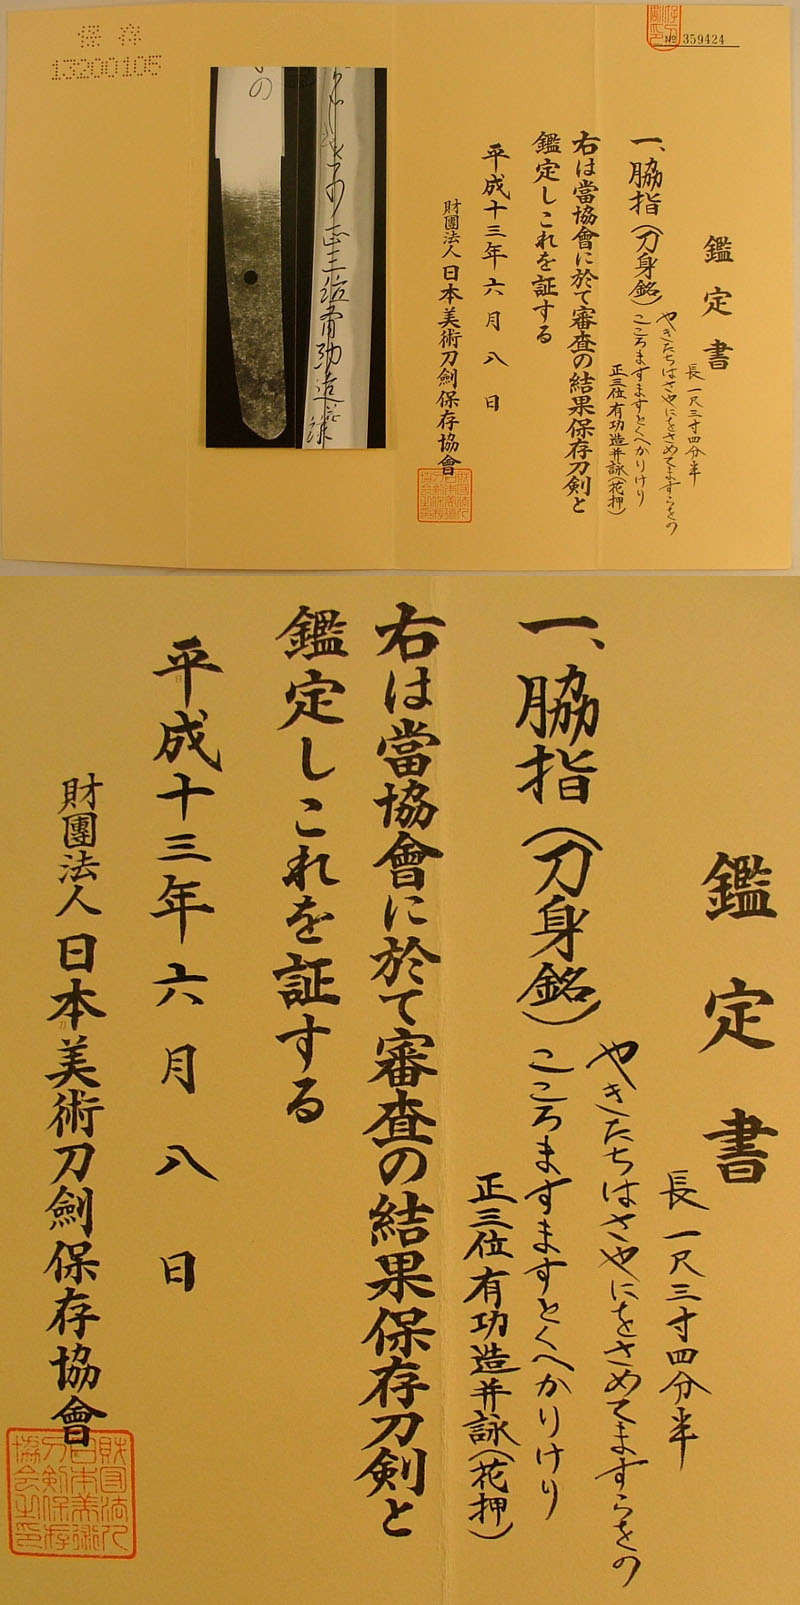 保存
13200105
№ 359424
鑑定書
一、脇指（刀身銘）
長一尺三寸四分半
やきたちはさやにをさめてますらをの
こころますますとくへかりけり
正三位有功造并詠（花押）
右は當協會に於て審査の結果保存刀剣と
鑑定しこれを証する
平成十三年六月八日
財團法人日本美術刀劍保存協會
の
正三位有功造并詠
鑑定書
長一尺三寸四分半
一、脇指（刀身銘）
やきたちはさやにをさめてますらをの
こころますますとくへかりけり
正三位有功造并詠（花押）
右は當協會に於て審査の結果保存刀剣と
鑑定しこれを証する
平成十三年六月八日
財團法人日本美術刀劍保存協會
財団法人
日本美術
刀剣保存
協会之印